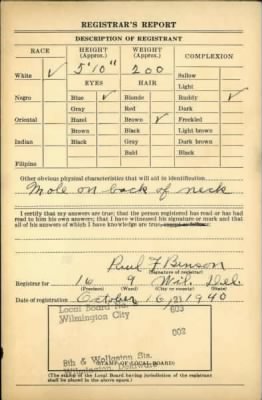 REGISTRAR'S REPORT
DESCRIPTION OF REGISTRANT
RACE HEIGHT (Approx.) WEIGHT (Approx.) COMPLEXION
White ✓ 5'10" 200 Sallow
EYES HAIR Light
Negro Blue ✓ Blonde Ruddy ✓
Gray Red Dark
Oriental Hazel Brown ✓ Freckled
Brown Black Light brown
Indian Black Gray Dark brown
Bald Black
Filipino
Other obvious physical characteristics that will aid in identification
Mole on back of neck
I certify that my answers are true; that the person registered has read or has had
read to him his own answers; that I have witnessed his signature or mark and that
all of his answers of which I have knowledge are true, except as follows:
Paul F Benson
(Signature of registrar)
Registrar for 16 9 Wil. Del.
(Precinct) (Ward) (City or county) (State)
Date of registration October 16, 1940
Local Board No.
Wilmington City 603
002
8th & Wollaston Sts.
Wilmington, Delaware
(STAMP OF LOCAL BOARD)
(The stamp of the Local Board having jurisdiction of the registrant
shall be placed in the above space.)